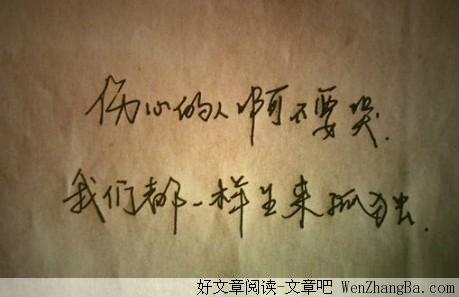 伤心的人啊不要哭.
我们都一样生来孤独.
好文章阅读-文章吧 WenZhangBa.com